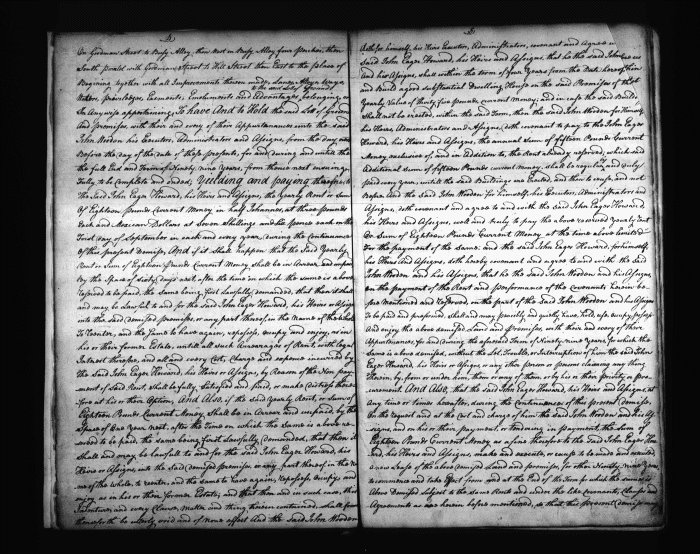 On Goodman Street to Busy Alley, then West on Busy Alley four perches, then
South paralel with Goodman Street to Hill Street then East to the place of
Beginning together with all Improvements thereon made, Lanes, Alleys, ways,
Waters, priviledges, Easements, Enrolments and Advantages, belonging, or
In Anywise appertaining, To have And to Hold the said Lot of Ground
And premises, with their and every of their Appurtenances unto the said
John Wooden his Executors, Administrators and Assigns, from the day next
Before the day of the date of these presents, for and during and until the
the full End and Term of Ninety nine years, from thence next ensuing
Fully to be Complete and ended, Yeilding and paying therefore, to
The said John Eager Howard, his Heirs and Assigns, the Yearly Rent or Sum
Of Eighteen Pounds Current Money in half Johannes, at three pounds
Each and Mexican Dollars at Seven Shillings and Six pence each on the
First day of September in each and every year, during the continuance
Of this present Demise, And if it shall happen that the said Yearly
Rent or Sum of Eighteen Pounds Current Money shall be in Arrear and unpaid
By the Space of sixty days next after the time on which the same is above
Reserved to be paid, the same being first Lawfully demanded, that then it shall
and may be Lawful to and for the said John Eager Howard, his Heirs or Assigns
into the said demised premises, or any part thereof, in the Name of the whole
To Reenter, and the same to have again, repossess, occupy and enjoy, as in
his or their former Estate, until all such Arrearages of Rent, with legal
Interest therefor, and all and every Cost, Charge and expence incurred by
the said John Eager Howard, his Heirs or Assigns, by Reason of the Non pay-
ment of said Rent shall be fully satisfied and paid, or make distress there
fore at his or their Option, And Also, if the said Yearly Rent, or Sum of
Eighteen Pounds Current Money, shall be in Arrear and unpaid, by the
Space of One Year next after the Time on which the same is above re-
served to be paid, the same being first Lawfully demanded, that then it
shall and may be Lawfull to and for the said John Eager Howard, his
Heirs or Assigns, into the said demised premises or any part thereof in the Na
me of the whole to reenter, and the same to have again, repossess, occupy, and
enjoy as in his or their former Estate, and that then and in such case, this
Indenture, and every Clause, matter and thing herein contained, shall from
thenceforth be utterly void and of None effect And the said John Wooden
doth for himself, his Heirs Executors, Administrators, covenant and Agree with
said John Eager Howard, his Heirs and Assigns, that he the said John Wooden
and his Assigns, shall within the term of four Years from the Date hereof
And Build a good substantial Dwelling House on the said Premises of the
Yearly Value of thirty five pounds current Money, and in case the said Building
Shall not be erected, within the said Term, then the said John Wooden for Himself
his Heirs, Administrators and Assigns, doth covenant to pay to the John Eager
Howard, his Heirs and Assigns, the annual Sum of fifteen Pounds Current
Money exclusive of, and in Addition to, the Rent already reserved, which said
Additional Sum of fifteen Pounds current money, shall be regularly and duly
paid every year, untill the said Buildings are Erected, and then to cease, and not
before. And the said John Wooden for himself, his Executors, Administrators and
Assigns, doth covenant and agree to and with the said John Eager Howard
his Heirs and Assigns, well and truly to pay the above reserved Yearly Rent
Or Sum of Eighteen Pounds Current Money at the time above limited
For the payment of the same; and the said John Eager Howard, for himself,
his Heirs and Assigns, doth hereby covenant and agree to and with the said
John Wooden and his Assigns, that he the said John Wooden and his Assigns,
on the payment of the Rent and performance of the Covenants herein be-
fore Mentioned and Reserved on the part of the said John Wooden and his Assigns
To be paid and preformed, shall and may peacibly and quietly have, hold, use, occupy, possess
And enjoy the above demised Land and premises, with their and every of their
Appurtenances, for and during the aforesaid Term of Ninety nine Years, for which the
Same is above demised, without the Let, Trouble, or Interruption of him the said John
Eager Howard, his Heirs or Assigns, or any other person or persons claiming any thing
therein, by, from or under him, them, or any of them, or by his or their privity or pro-
curement. And Also, that the said John Eager Howard, his Heirs and Assigns, at
Any time or times hereafter, during the Continuance of this present Demise,
On the request and at the Cost and charge of him the said John Wooden and his As-
signs, and on his or their payment, or tendering in payment, the Sum of
Eighteen Pounds Current Money as a fine therefor to the said John Eager How
ard, his Heirs and Assigns, make and execute, or cause to be made and executed
a new Lease of the above demised Land and premises, for other Ninety nine Years,
to commence and take Effect from and at the End of the Term for which the same is
Above Demised subject to the same Rent and under the like Covenants, Clauses and
Agreements as are herein before mentioned, so that this present Demise may